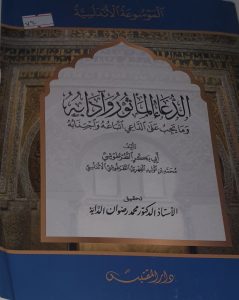 الموسوعة الأندلسية
الدعاء المأثور وآدابه
وما يجب على الداعي اتباعه واجتنابه
تأليف
أبي بكر الطرطوشي
محمد بن الوليد الفهري الطرطوشي الأندلسي
تحقيق
الأستاذ الدكتور محمد رضوان الداية
دار المقتبس